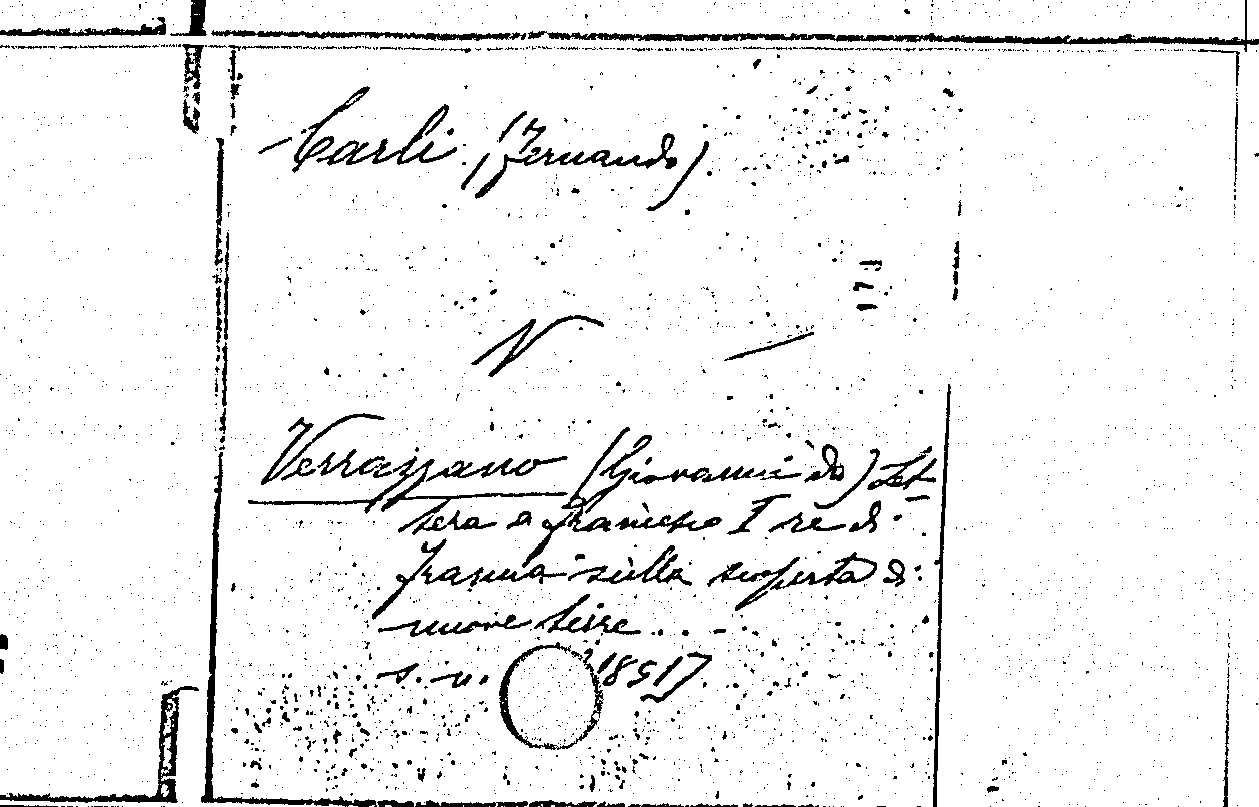 Carli, (Fernando).
V
Verrazzano (Giovanni da) Let-
tera a Francesco I re di
Francia sulla scoperta di
nuove terre...
s. v.